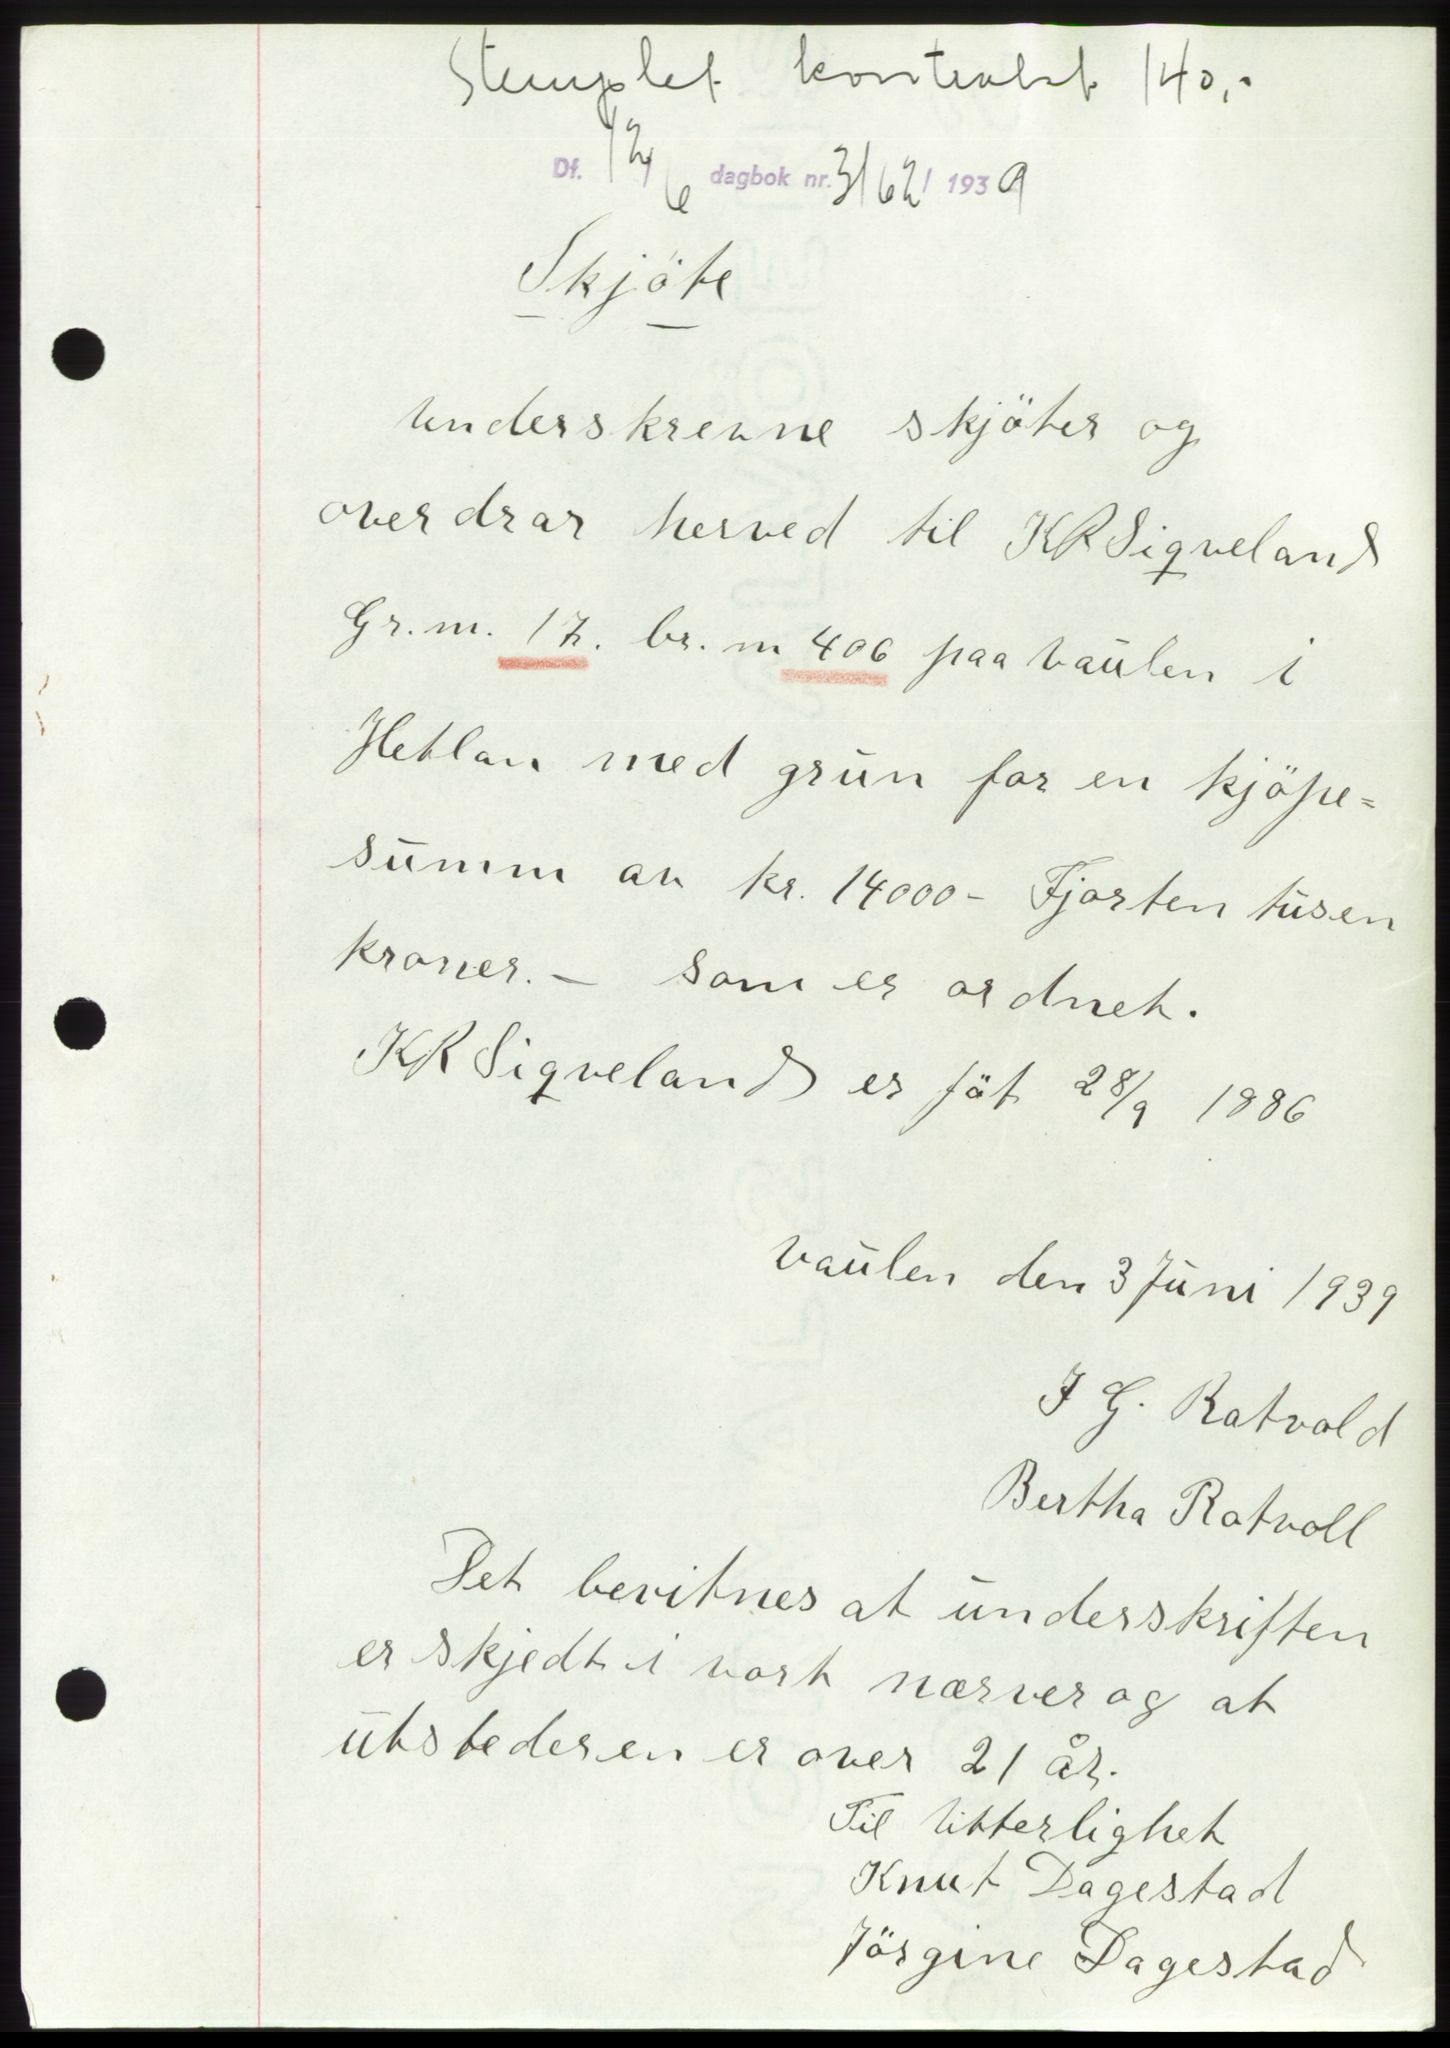 Stemplet kontrakt 140,-
Df. 12/6 dagbok nr. 3162/1939
Skjöte
Underskrevne skjöter og
overdrar herved til KRSiqveland
Gr.m. 17. br. m 406 paa Vaulen i
Hetlan med grun for en kjöpe=
summ av kr. 14000- Fjorten tusen
kroner. - som er ordnet.
KRSiqveland er föt 28/9 1886
Vaulen den 3 Juni 1939
J G. Ratvold
Bertha Ratvoll
Det bevitnes at underskriften
er skjedt i vort nærver og at
utstederen er over 21 år.
Til Vitterlighet
Knut Dagestad
Jörgine Dagestad